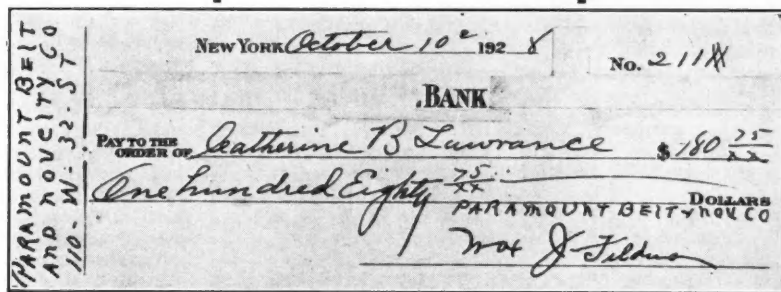 PARAMOUNT BELT
AND NOVELTY CO
110 - W. 32. ST
NEW YORK October 10 1928
No. 211
BANK
PAY TO THE
ORDER OF Catherine B Lawrance $180 75/xx
One hundred Eighty 75/xx DOLLARS
PARAMOUNT BELT & NOV. CO
Max J Feldman